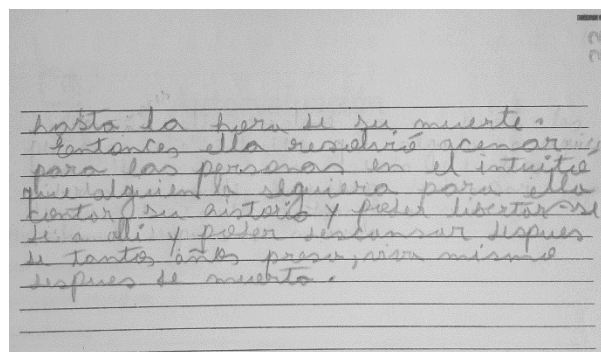 hasta la hora de su muerte.
Entonces ella resolvió acenar
para las personas en el intuitio
que alguien la seguiera para ella
contar su aistoria y poder libertar-se
de a alli y poder descansar despues
de tantos años presa, viva mismo
despues de muerta.